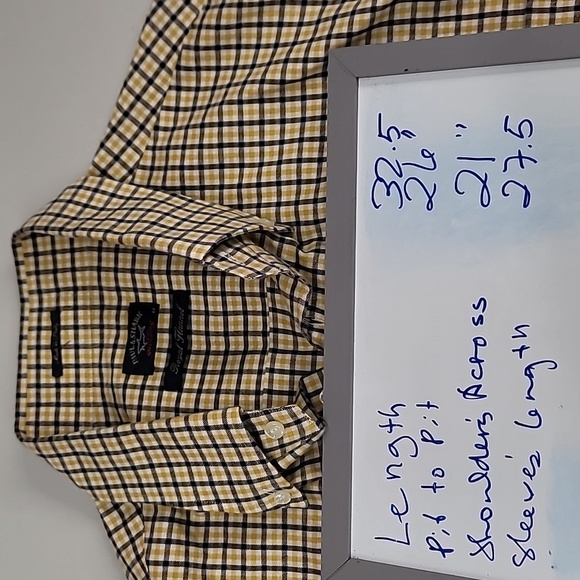 Length 32.5"
Pit to Pit 26"
Shoulders Across 21"
Sleeves Length 27.5
PAUL & SHARK